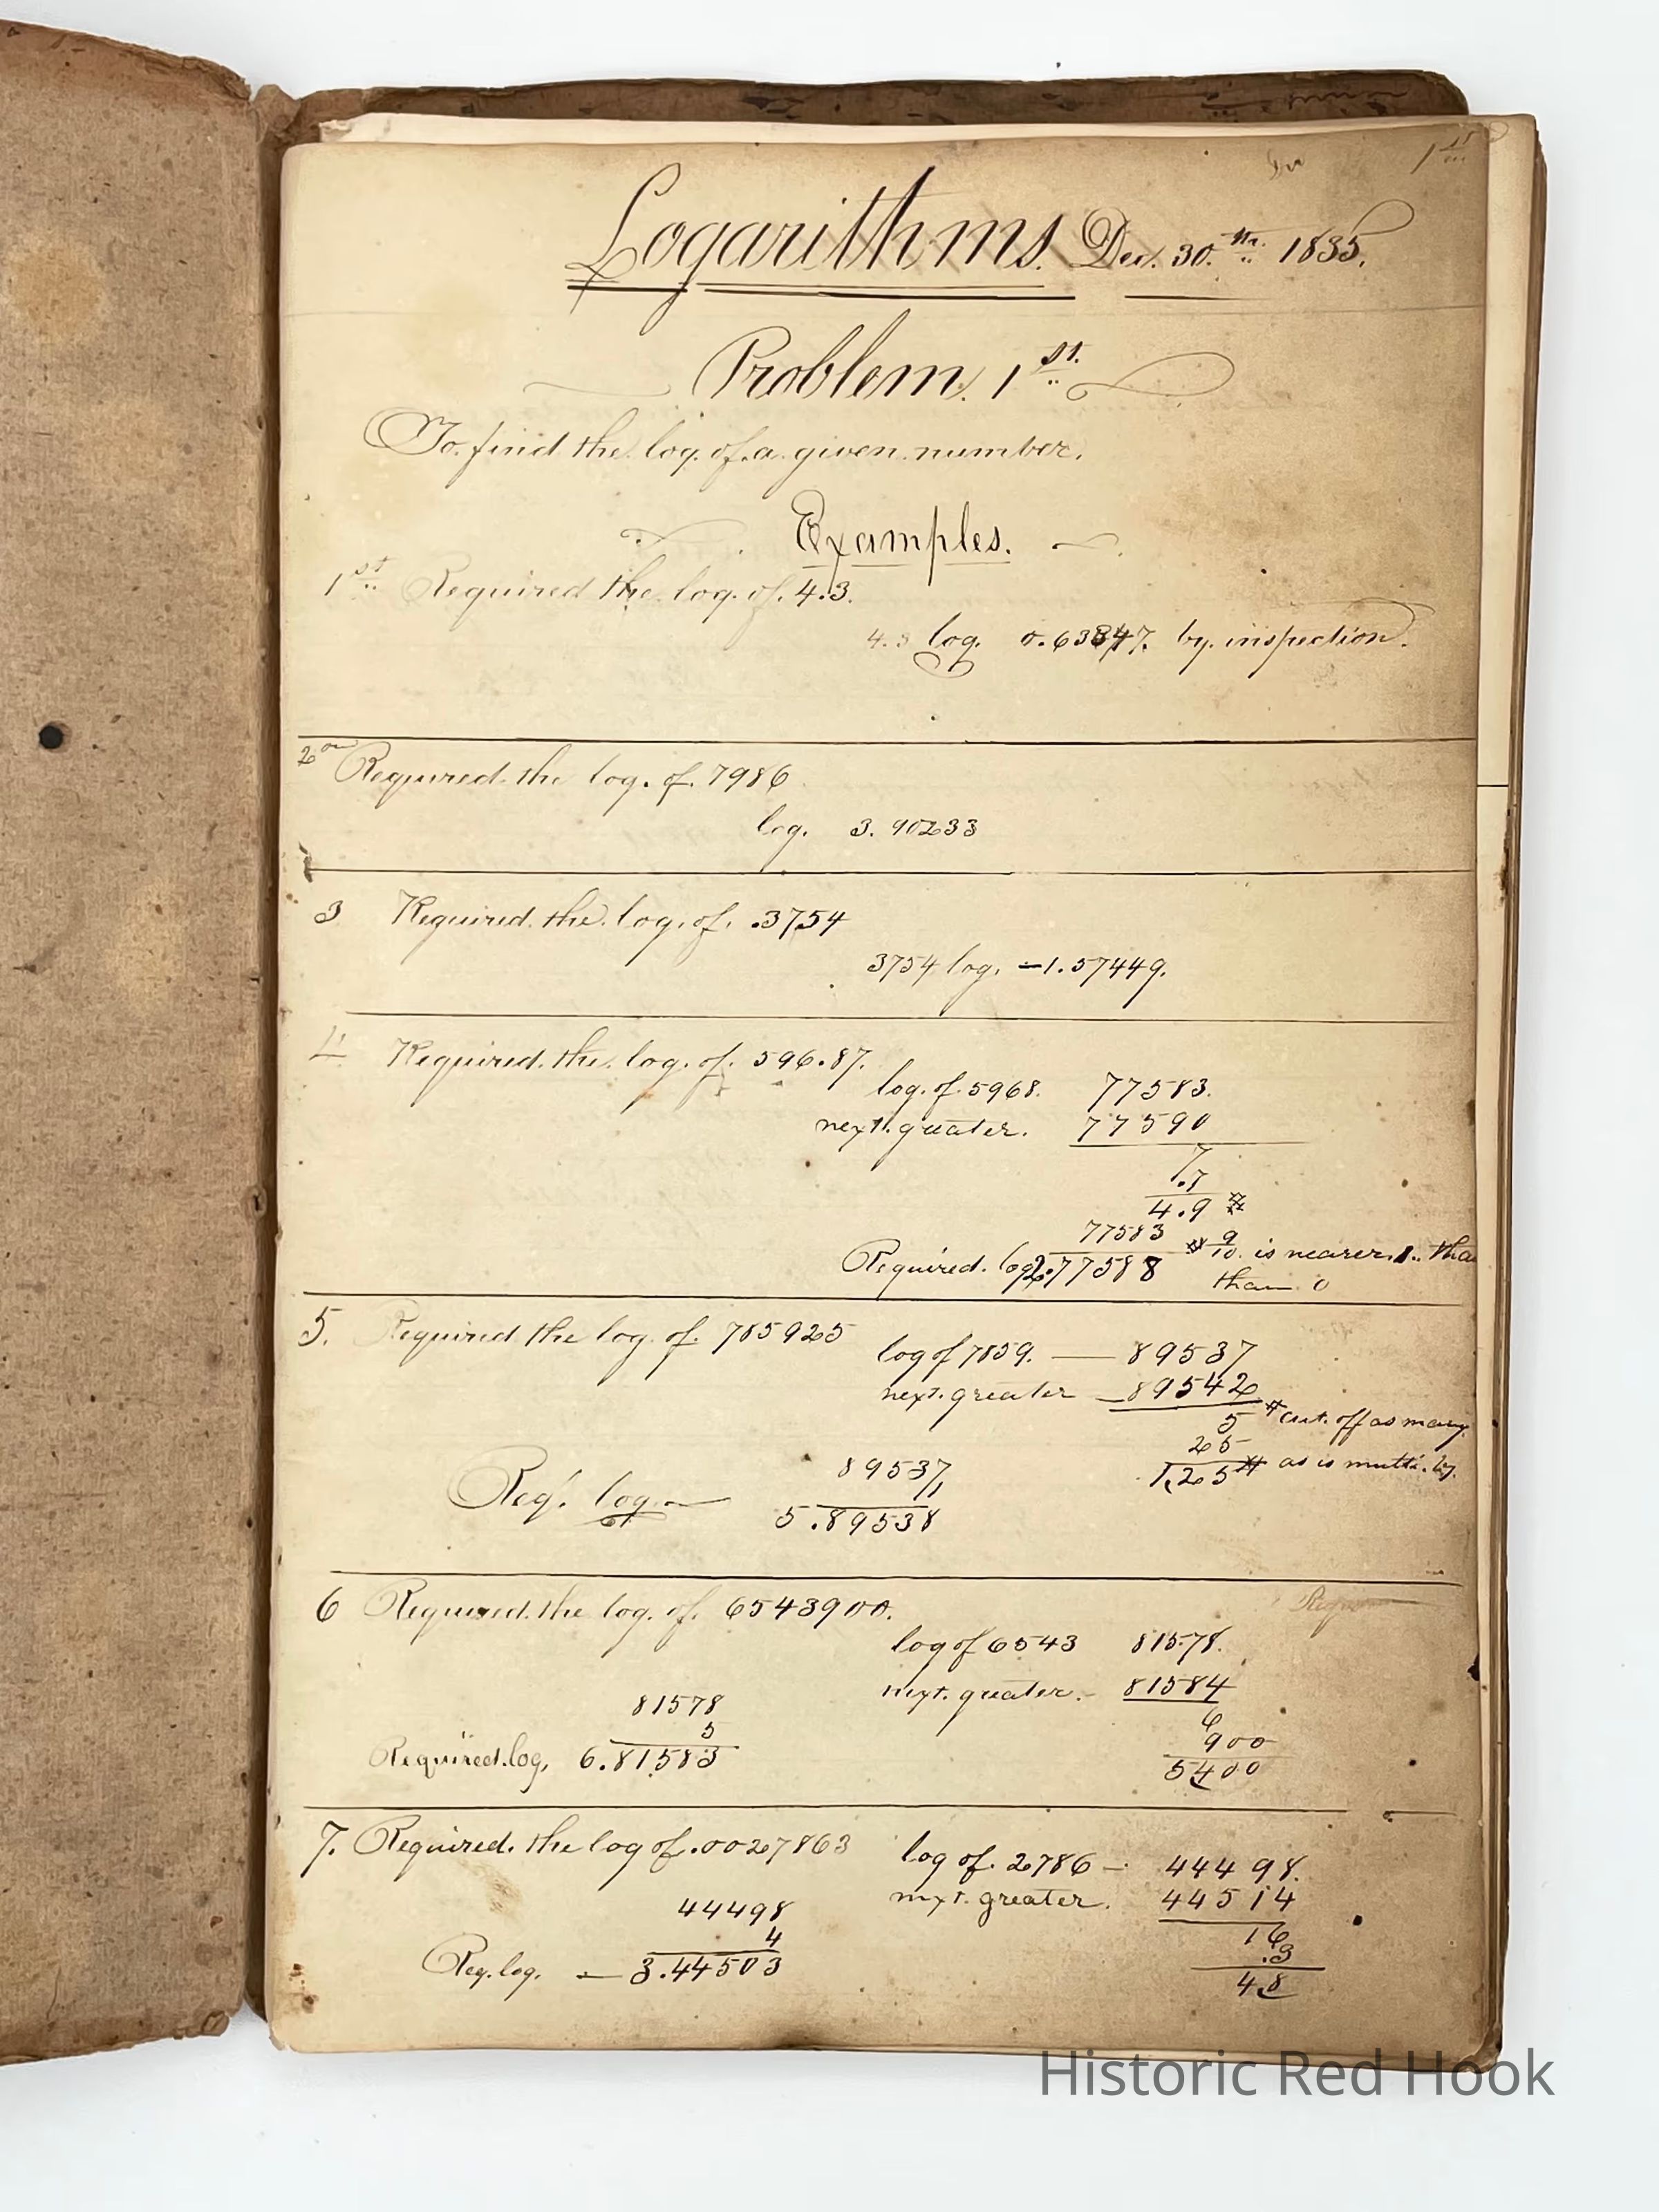 1st
Logarithms. Dec. 30.th 1835.
Problem. 1st
To find the log. of a given number.
Examples.
1st Required the log. of. 4.3.
4.3 log. 0.63347. by. inspection.
2 Required the log. of. 7986
log. 3. 90233
3 Required the log. of. .3754
3754 log. -1.57449.
4 Required the log. of. 596.87.
log. of. 5968. 77583.
next. greater. 77590
7
.7
4.9 #
77583 # 9/10 is nearer 1. tha
Required. log 2.77588 than 0
5. Required the log. of. 785925
log of 7859. — 89537
next. greater — 89542
5 # cut. off as many
25
1,25 # as is multi. by.
89537,
1
Req'. log. — 5.89538
6 Required the log. of. 6543900.
Requ
log of 6543 81578.
next. greater. - 81584
6
900
5400
81578
5
Required. log, 6.81583
7. Required. the log of .0027863
log of. 2786 — 44498.
next. greater. 44514
16
.3
4.8
44498
4
Req. log. — 3.44503
Historic Red Hook